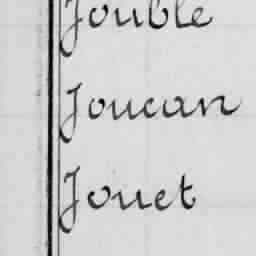 Jouble
Joucan
Jouet